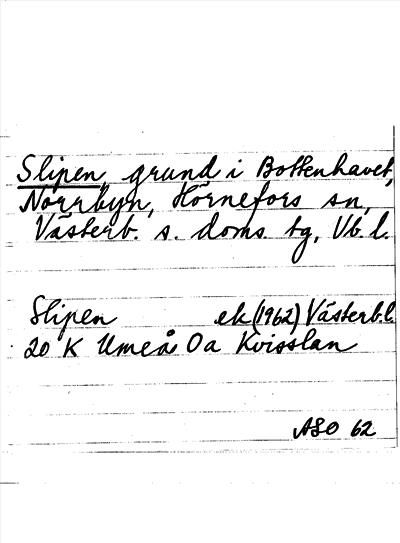 Slipen, grund i Bottenhavet,
Norrbyn, Hörnefors sn,
Västerb. s. doms. tg, Vb. l.
Slipen ek (1962) Västerb.l.
20 K Umeå Oa Kvisslan
ASO 62